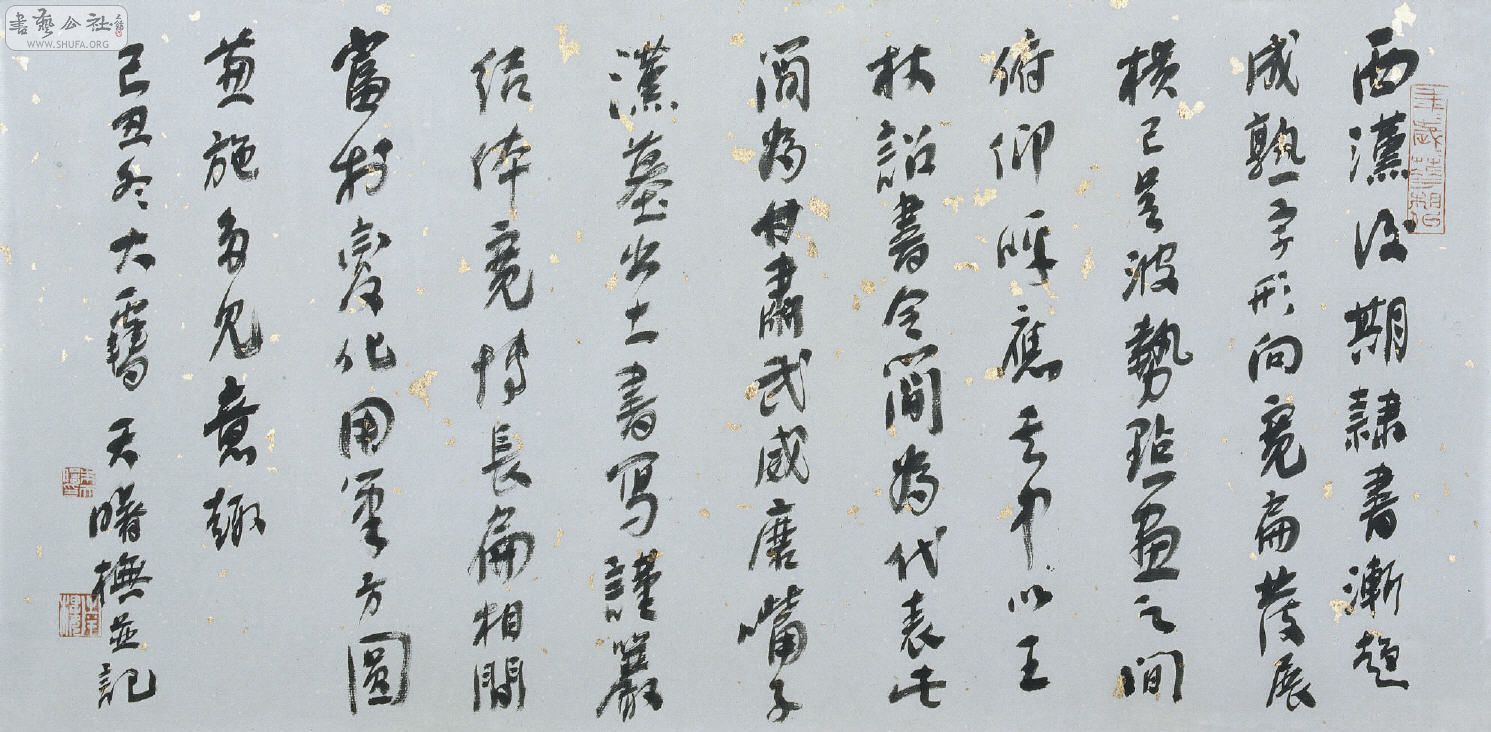 西漢後期隸書漸趨
成熟字形向寬扁發展
橫已呈波勢點畫之間
俯仰呼應其中以王
杖詔書令簡為代表此
簡為甘肅武威磨嘴子
漢墓出土書寫謹嚴
結体寬博長扁相間
富於變化用筆方圓
兼施多見意趣
己丑冬大雪 天曙撫並記
書藝公社
WWW.SHUFA.ORG